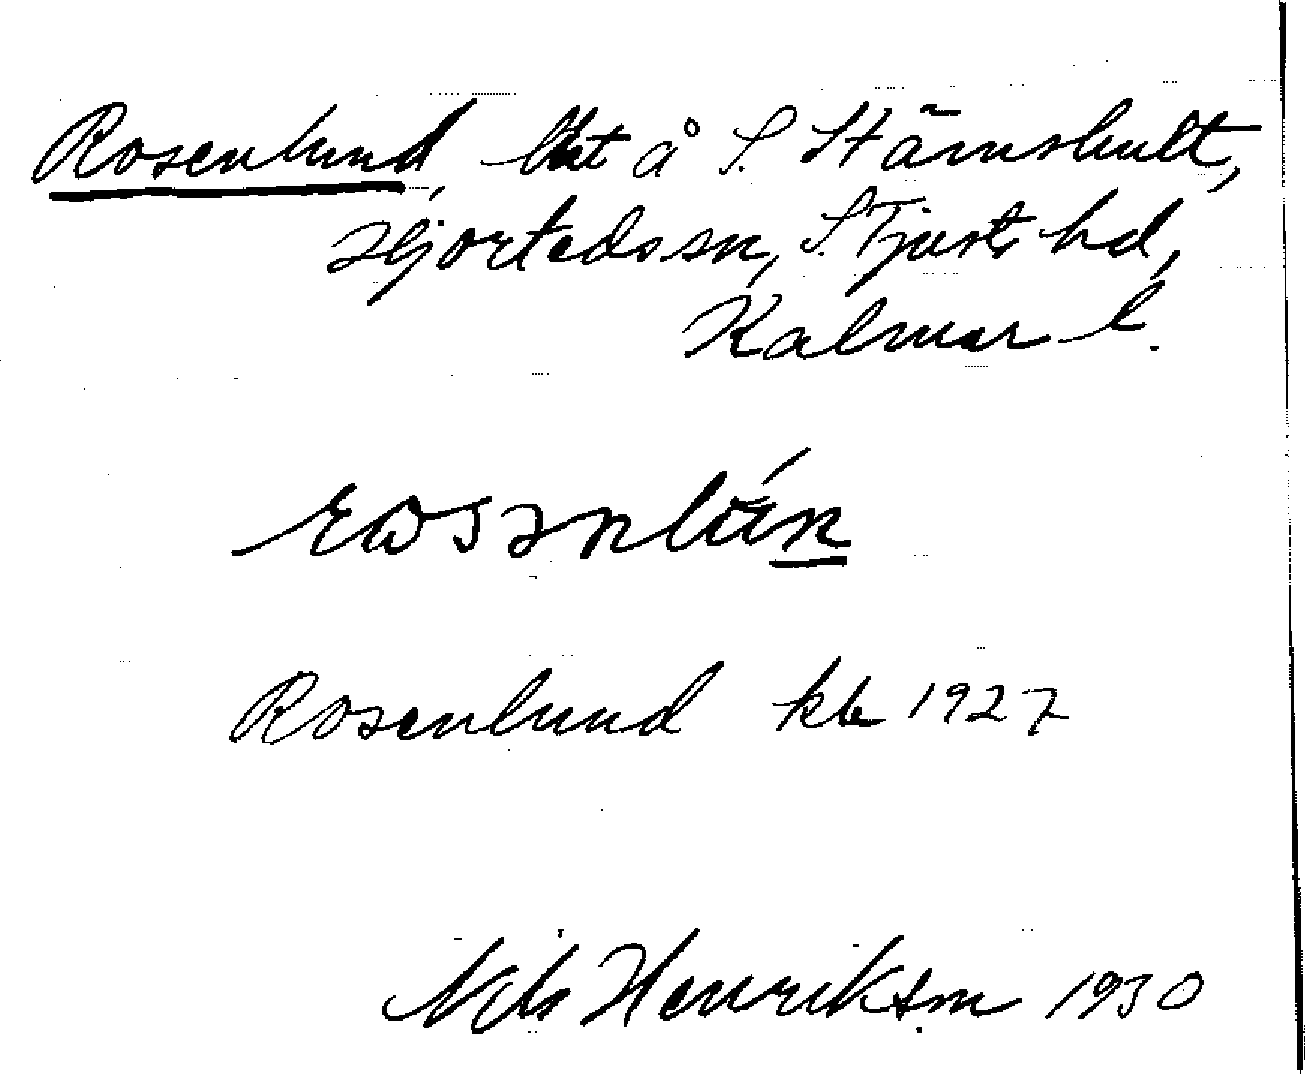 Rosenlund, lht å S. Stämshult,
Hjorteds sn, S. Tjusts hd,
Kalmar l.
Rosenlund kb 1927
Nils Henrikson 1930